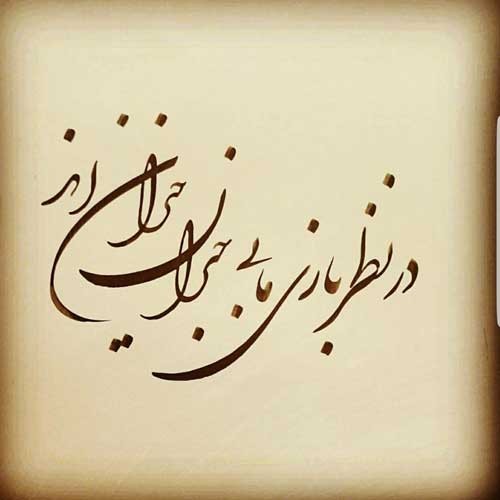 در نظر بازی ما بی خبران حیران اند